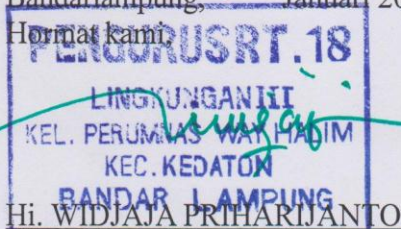 Bandarlampung, Januari 20
Hormat kami,
PENGURUS RT. 18
LINGKUNGAN III
KEL. PERUMNAS WAY HALIM
KEC. KEDATON
BANDAR LAMPUNG
Hi. WIDJAJA PRIHARIJANTO